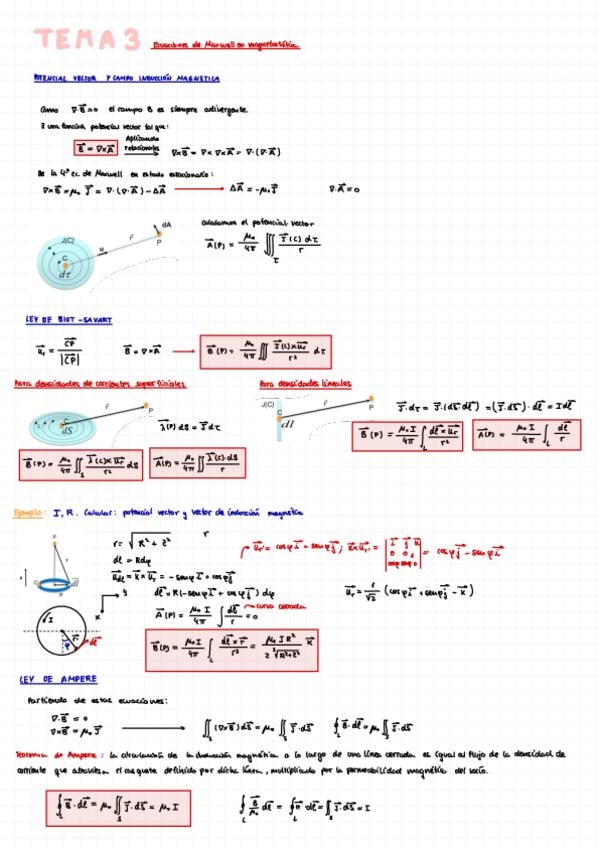 TEMA 3 Ecuaciones de Maxwell en magnetostática.
POTENCIAL VECTOR Y CAMPO INDUCCIÓN MAGNÉTICA
Como ∇·B⃗=0 el campo B es siempre adivergente.
∃ una función potencial vector tal que:
B⃗ = ∇×A⃗ Aplicando rotacionales ⟶ ∇×B⃗ = ∇×∇×A⃗ = ∇·(∇·A⃗)
De la 4ª ec. de Maxwell en estado estacionario:
∇×B⃗ = μ₀ J⃗ = ∇·(∇·A⃗) − ΔA⃗ ⟶ ΔA⃗ = −μ₀J⃗ ∇·A⃗ = 0
Calculamos el potencial vector
A⃗(P) = μ₀/4π ∭τ J⃗(C) dτ / r
J(C) C dτ u r⃗ P dA
LEY DE BIOT-SAVART
u⃗r = CP⃗ / |CP⃗| B⃗ = ∇×A⃗ ⟶ B⃗(P) = μ₀/4π ∭ J⃗(C)×u⃗r / r² dτ
Para densidades de corrientes superficiales
C dS r⃗ P
λ⃗(P) dS = J⃗ dτ
B⃗(P) = μ₀/4π ∬S λ⃗(C)×u⃗r / r² dS A⃗(P) = μ₀/4π ∬ λ⃗(C)·dS / r
Para densidades lineales
J(C) C dl r⃗ P
J⃗·dτ = J⃗·(dS⃗·dℓ⃗) = (J⃗·dS⃗)·dℓ⃗ = I dℓ⃗
B⃗(P) = μ₀ I/4π ∫L dℓ⃗×u⃗r / r² A⃗(P) = μ₀ I/4π ∫L dℓ⃗ / r
Ejemplo: I, R. Calcular: potencial vector y vector de inducción magnética
r = √(R² + z²) r
dℓ = R dφ
u⃗dℓ = k⃗×u⃗r = −senφ i⃗ + cosφ j⃗
dℓ⃗ = R(−senφ i⃗ + cosφ j⃗) dφ
u⃗r' = cosφ i⃗ + senφ j⃗; k⃗×u⃗r' = | i⃗ j⃗ k⃗ ; 0 0 1 ; cosφ senφ 0 | = cosφ j⃗ − senφ i⃗
A⃗(P) = μ₀ I/4π ∫ dℓ⃗/r = 0 curva cerrada
B⃗(P) = μ₀ I/4π ∫L dℓ⃗×r⃗ / r³
LEY DE AMPERE
Partiendo de estas ecuaciones:
∇·B⃗ = 0
∇×B⃗ = μ₀ J⃗ ⟶ ∬S (∇×B⃗) dS⃗ = μ₀ ∬S J⃗·dS⃗ ∮L B⃗·dℓ⃗ = μ₀ ∬S J⃗·dS⃗
Teorema de Ampere: la circulación de la inducción magnética a lo largo de una línea cerrada es igual al flujo de la densidad de
corriente que atraviesa el casquete definido por dicha línea, multiplicado por la permeabilidad magnética del vacío.
∮L B⃗·dℓ⃗ = μ₀ ∬S J⃗·dS⃗ = μ₀ I ∮L B⃗/μ₀ dℓ⃗ = ∮L H⃗·dℓ⃗ = ∬S J⃗·dS⃗ = I